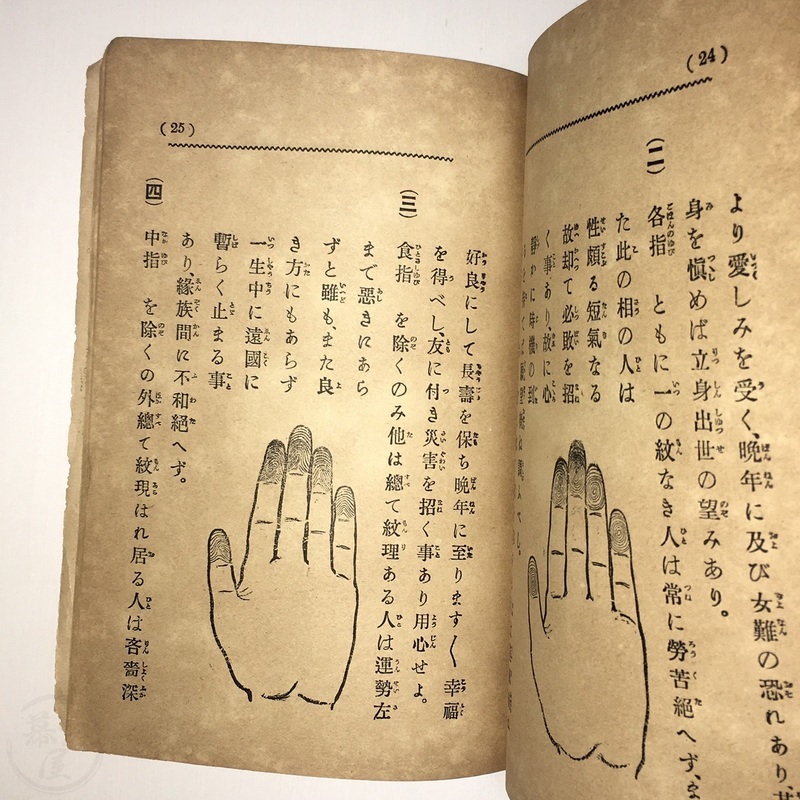 (24)
より愛しみを受く、晩年に及び女難の恐れあり、
身を愼めば立身出世の望みあり。
(二) 各指 ともに一の紋なき人は常に勞苦絕へず、ま
た此の相の人は
性頗る短氣なる
故却て必敗を招
く事あり、故に心
靜かに時機の到
(25)
好良にして長壽を保ち晩年に至ります〱幸福
を得べし、友に付き災害を招く事あり用心せよ。
(三) 食指 を除くのみ他は總て紋理ある人は運勢左
まで悪きにあら
ずと雖も、また良
き方にもあらず
一生中に遠國に
暫らく止まる事
あり、緣族間に不和絕へず。
(四) 中指 を除くの外總て紋現はれ居る人は吝嗇深